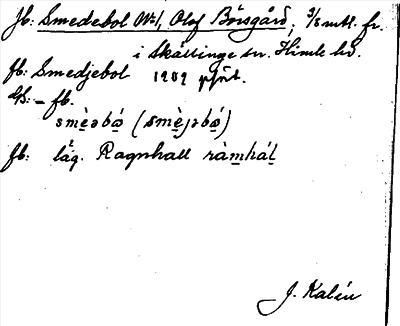 Jb: Smedebol No 1, Olof Börsgård, 3/8 mtl. fr.
i Skällinge sn. Himle hd.
fb: Smedjebol 1909
– fb.
smèəbó (smèjəbó)
fb: låg. Ragnhall ràmhál
J. Kalén